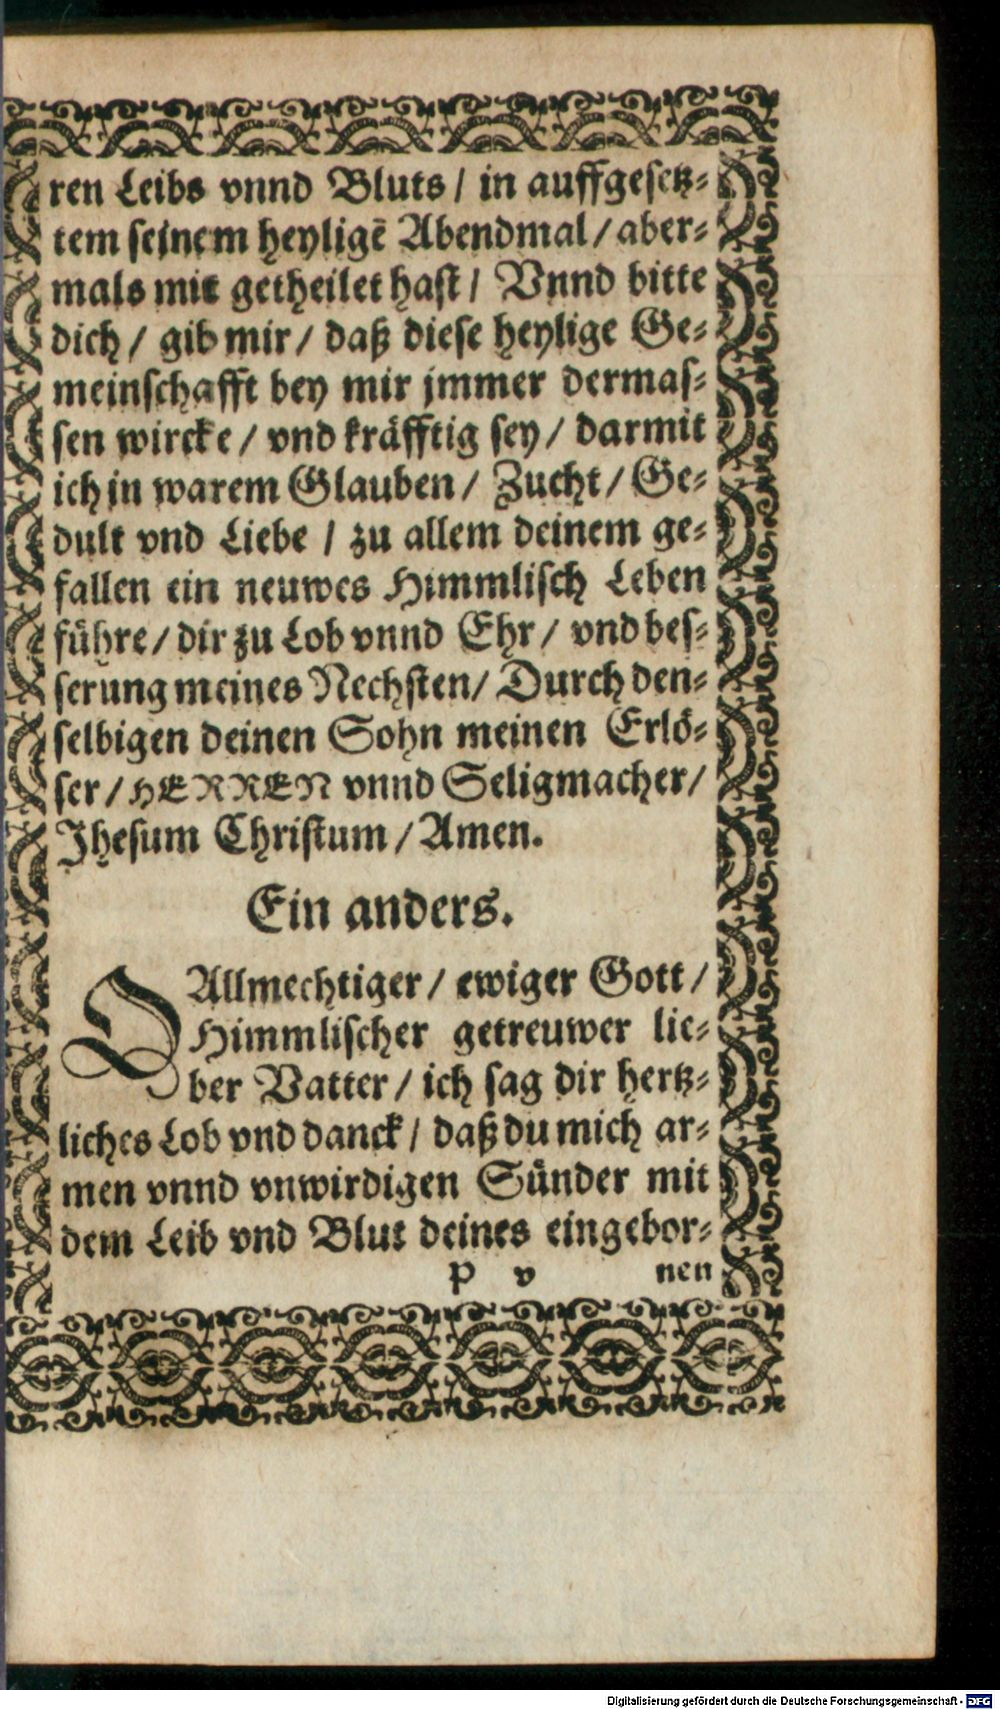 ren Leibs vnnd Bluts / in auffgesetz-
tem sejnem heyligē Abendmal / aber-
mals mit getheilet hast / Vnnd bitte
dich / gib mir / daß diese heylige Ge-
meinschafft bey mir jmmer dermas-
sen wircke / vnd kräfftig sey / darmit
ich in warem Glauben / Zucht / Ge-
dult vnd Liebe / zu allem deinem ge-
fallen ein neuwes Himmlisch Leben
führe / dir zu Lob vnnd Ehr / vnd bes-
serung meines Nechsten / Durch den-
selbigen deinen Sohn meinen Erlö-
ser / HERREN vnnd Seligmacher /
Jhesum Christum / Amen.
Ein anders.
O Allmechtiger / ewiger Gott /
Himmlischer getreuwer lie-
ber Vatter / ich sag dir hertz-
liches Lob vnd danck / daß du mich ar-
men vnnd vnwirdigen Sünder mit
dem Leib vnd Blut deines eingebor-
p v nen
Digitalisierung gefördert durch die Deutsche Forschungsgemeinschaft - DFG